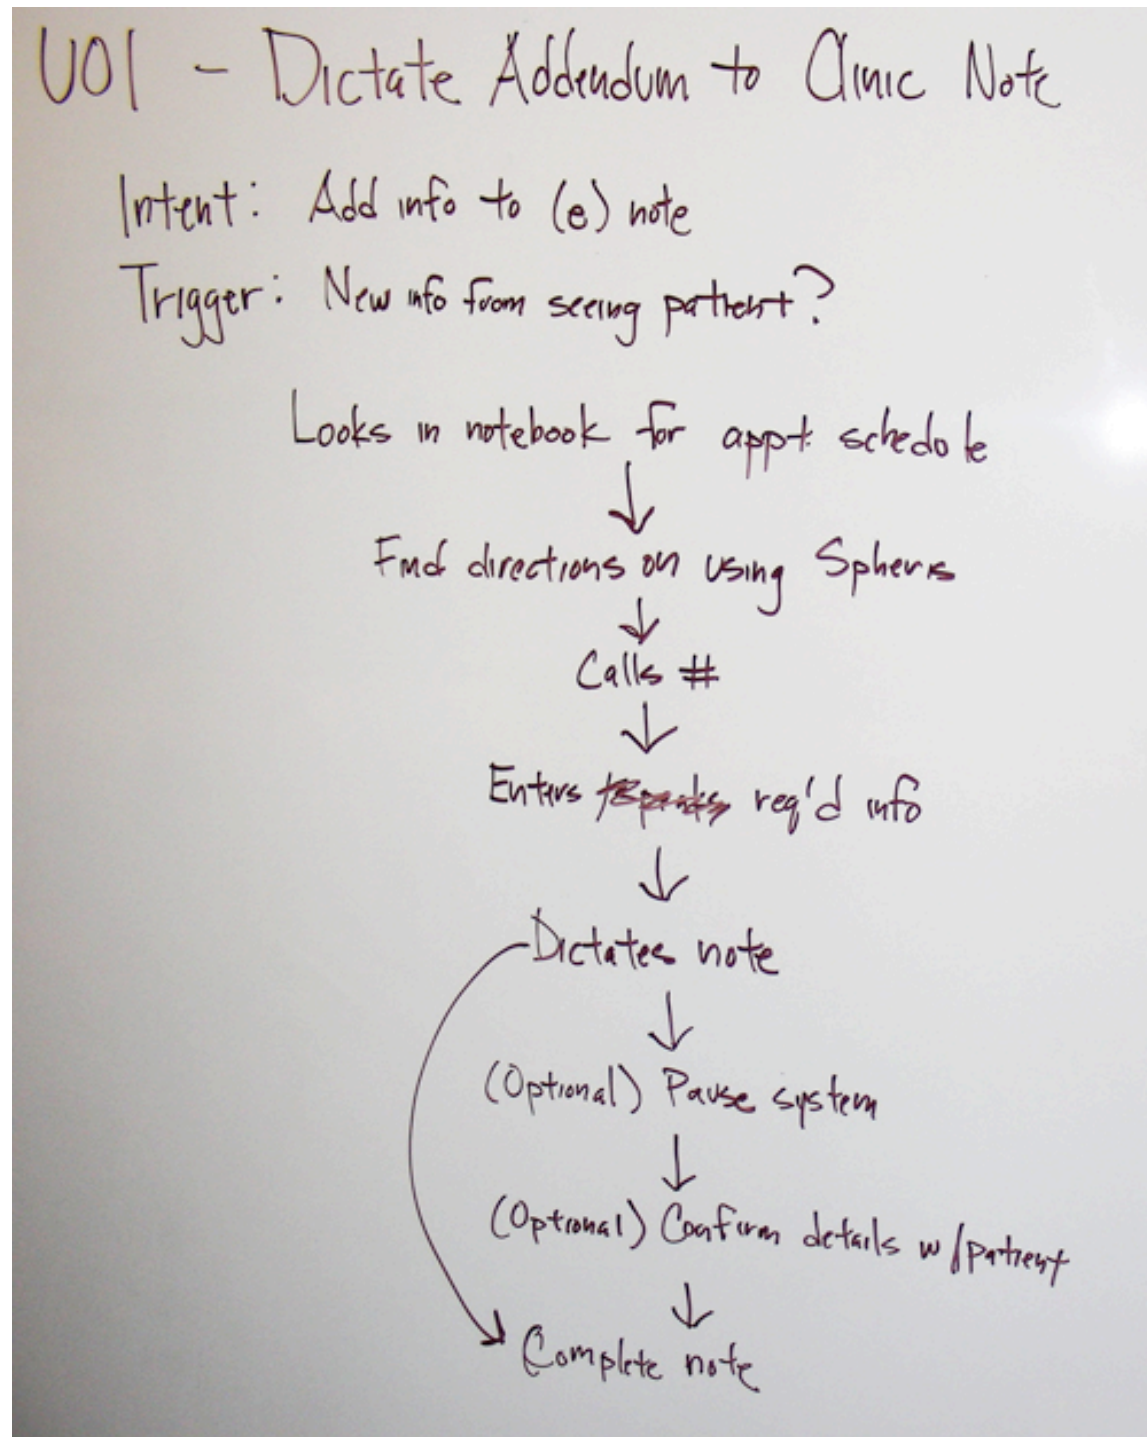 U01 - Dictate Addendum to Clinic Note
Intent: Add info to (e) note
Trigger: New info from seeing patient?
Looks in notebook for appt schedule
Find directions on using Spheris
Calls #
Enters req'd info
Dictates note
(Optional) Pause system
(Optional) Confirm details w/patient
Complete note